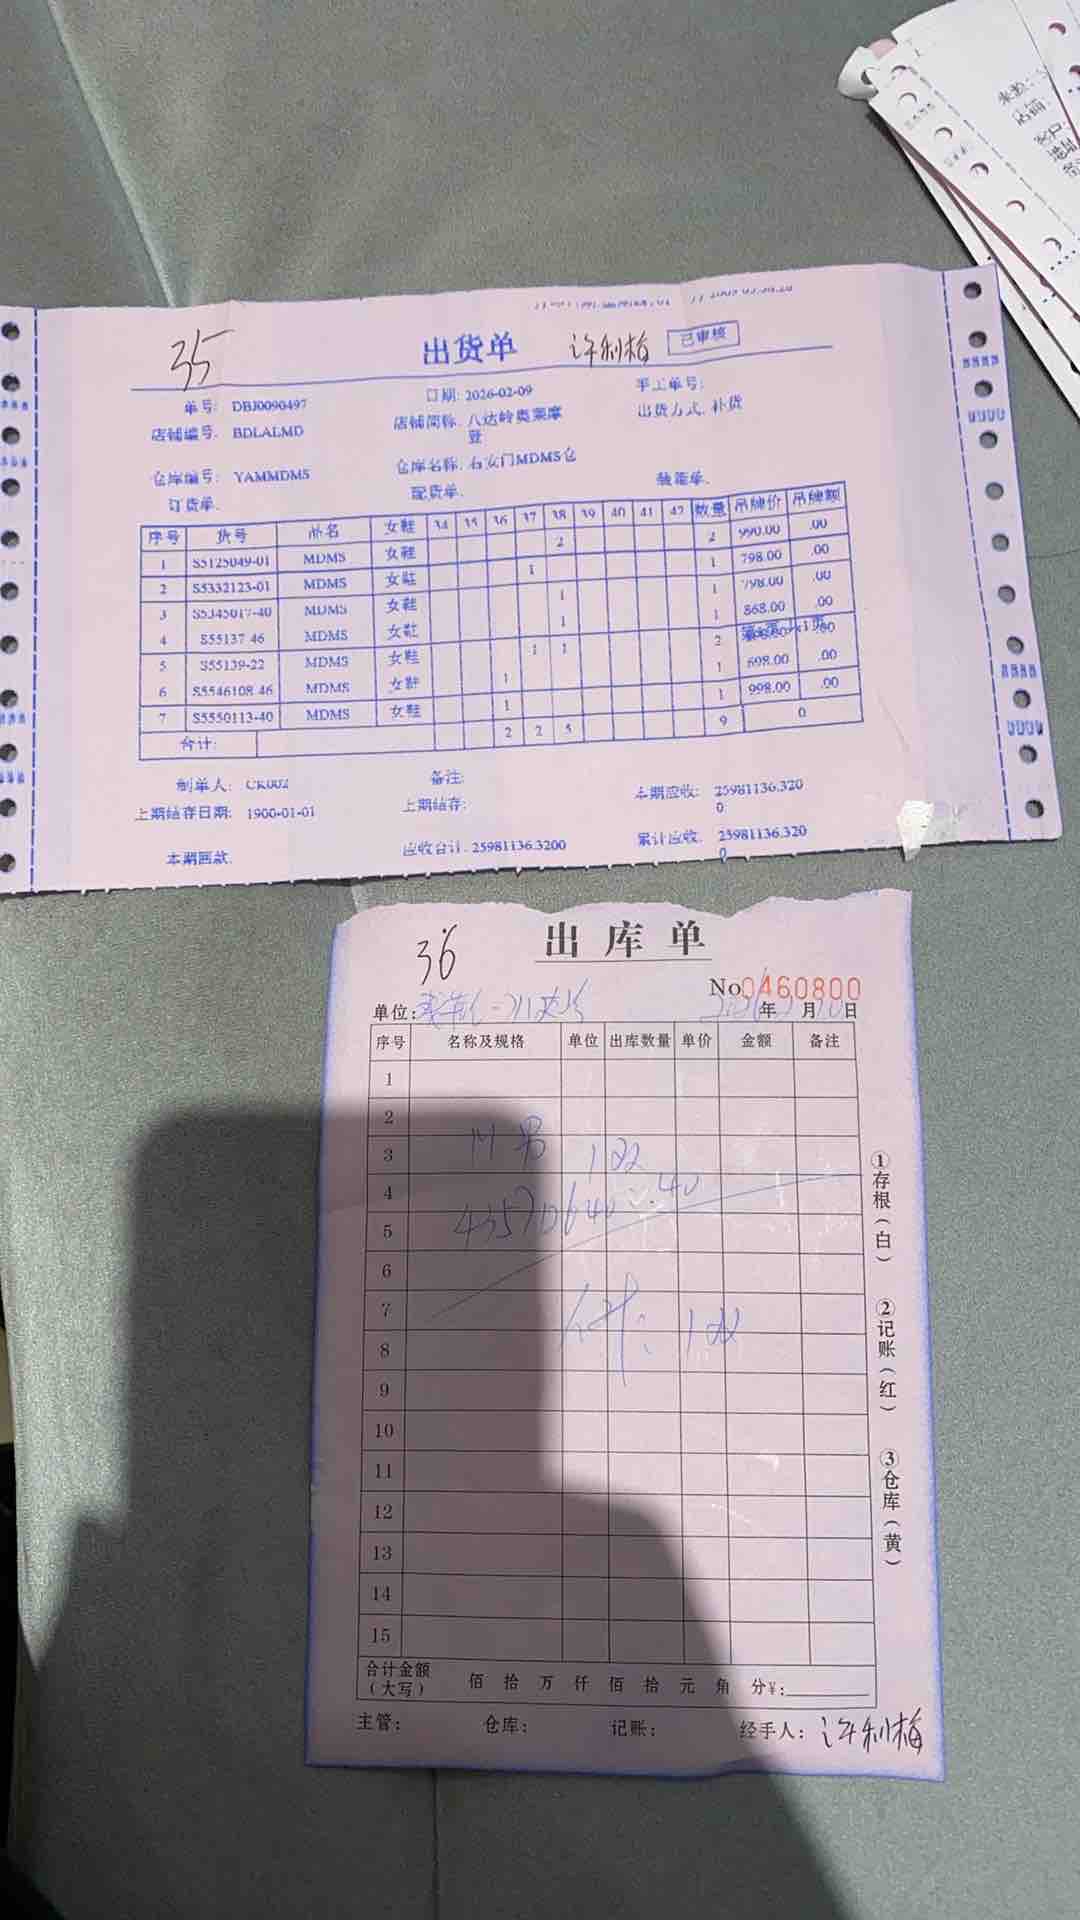 35
出货单 许利梅 已审核
单号: DBJ0090497 日期: 2026-02-09 手工单号:
店铺编号: BDLALMD 店铺简称: 八达岭奥莱摩登 出货方式: 补货
仓库编号: YAMMDMS 仓库名称: 右安门MDMS仓
订货单: 配货单: 装箱单:
序号 货号 品名 女鞋 34 35 36 37 38 39 40 41 42 数量 吊牌价 吊牌额
1 S5125049-01 MDMS 女鞋 2 2 990.00 .00
2 S5332123-01 MDMS 女鞋 1 1 798.00 .00
3 S5345017-40 MDMS 女鞋 1 1 798.00 .00
4 S55137-46 MDMS 女鞋 1 1 868.00 .00
5 S55139-22 MDMS 女鞋 1 1 2 .00
6 S5546108-46 MDMS 女鞋 1 1 698.00 .00
7 S5550113-40 MDMS 女鞋 1 1 998.00 .00
合计: 2 2 5 9 0
制单人: CK002 备注:
上期结存日期: 1900-01-01 上期结存: 本期应收: 25981136.3200
本期回款: 应收合计: 25981136.3200 累计应收: 25981136.3200
36 出库单
No 0460800
单位: 年 月 日
序号 名称及规格 单位 出库数量 单价 金额 备注
1
2
3
4
5
6
7
8
9
10
11
12
13
14
15
①存根(白) ②记账(红) ③仓库(黄)
合计金额(大写) 佰 拾 万 仟 佰 拾 元 角 分 ¥:
主管: 仓库: 记账: 经手人: 许利梅